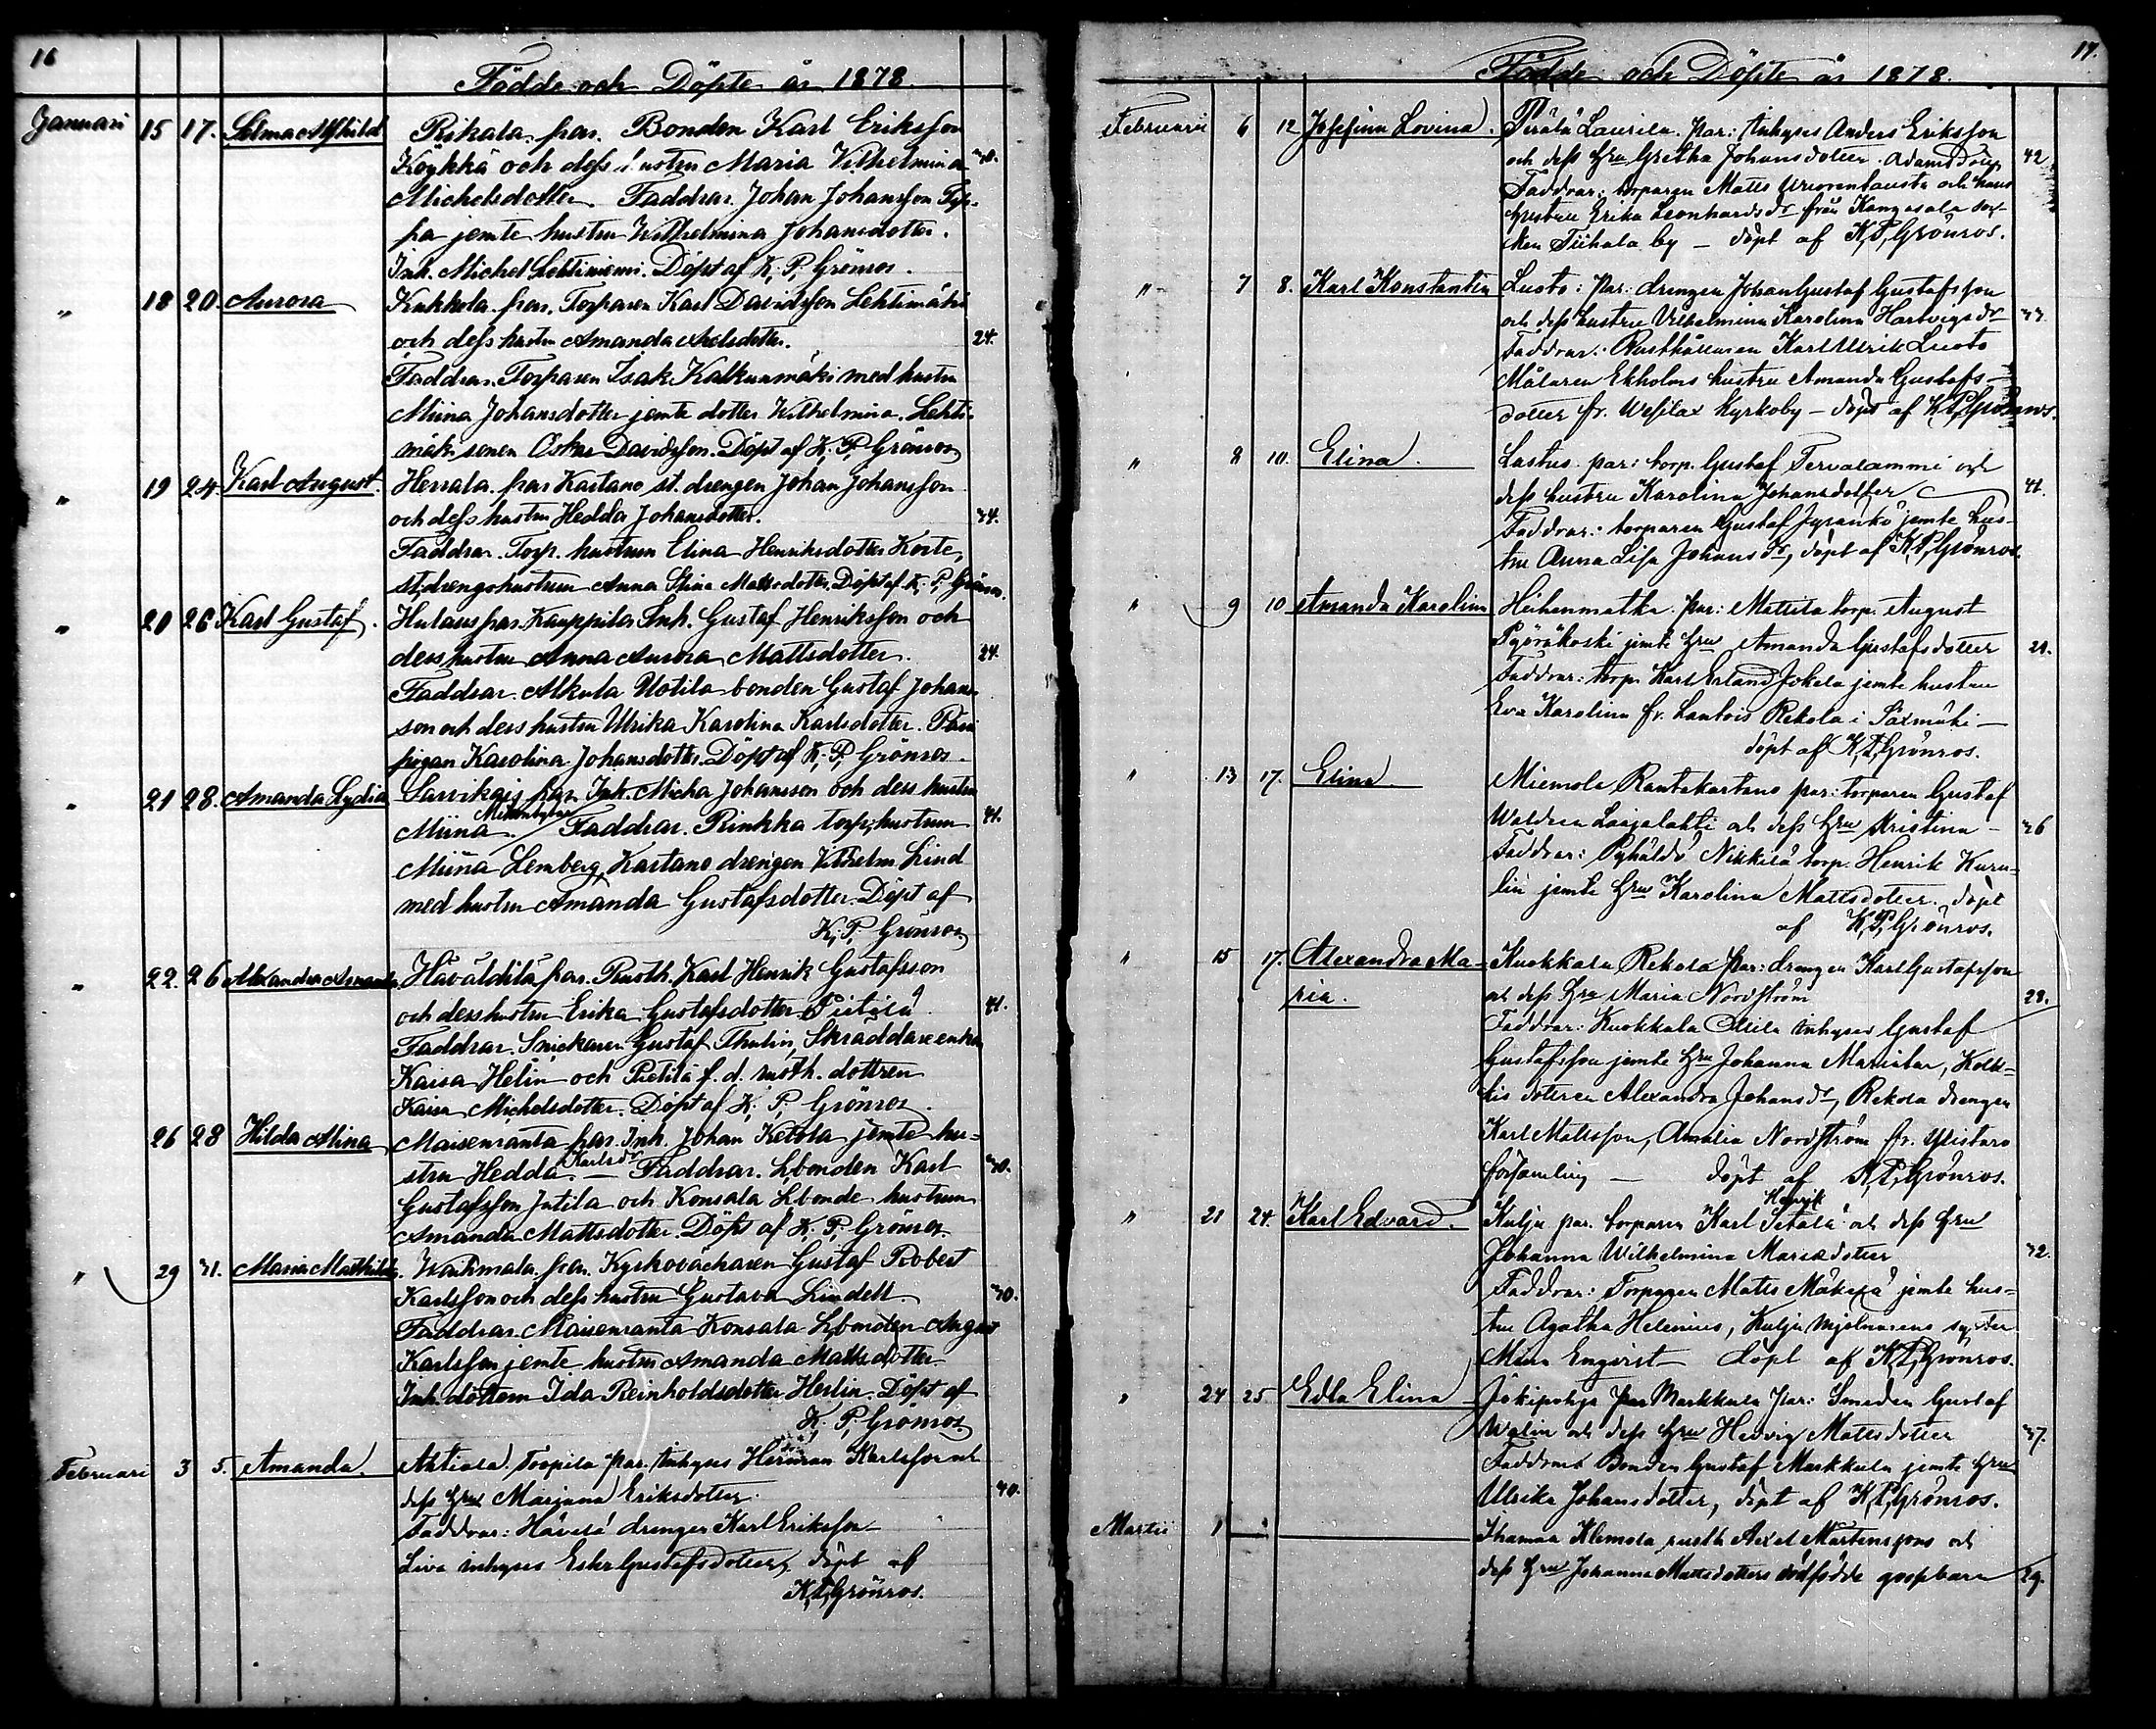 16
Födde och Döpte år 1878.
Januari 15 17. Selma Alfhild Rikala. par. Bonden Karl Eriksson
Köykkä och dess hustru Maria Wilhelmina 30.
Michelsdotter. Faddrar. Johan Johansson
pa jemte hustru Wilhelmina Johansdotter.
Inh. Michel Lehtiniemi. Döpt af K. P. Grönros.
" 18 20. Aurora Kukkola. par. Torparen Karl Davidsson Lehtimäki
och dess hustru Amanda Axelsdotter. 24.
Faddrar. Torparen Isak Kalkunmäki med hustru
Miina Johansdotter jemte dotter Wilhelmina. Lehti-
mäki sonen Oskar Davidsson. Döpt af K. P. Grönros
" 19 24. Karl August. Herrala. par. Kartano st. drengen Johan Johansson
och dess hustru Hedda Johansdotter. 34.
Faddrar. Torp. hustrun Elina Henriksdotter Korte,
st. drengshustrun Anna Stina Mattsdotter. Döpt af K. P. Grönros.
" 20 26 Karl Gustaf. Hulaus par. Kauppila Inh. Gustaf Henriksson och
dess hustru Anna Aurora Mattsdotter. 24.
Faddrar. Alkula Uotila bonden Gustaf Johans-
son och dess hustru Ulrika Karolina Karlsdotter.
pigan Karolina Johansdotter. Döpt af K. P. Grönros.
" 21 28. Amanda Lydia Sarvikas par. Inh. Micha Johansson och dess hustru
Miina. Faddrar. Rinkka torp. hustrun 41.
Miina Lemberg, Kartano drengen Vilhelm Lind
med hustru Amanda Gustafsdotter. Döpt af
K. P. Grönros
" 22. 26 Alexandra Amanda par. Rusth. Karl Henrik Gustafsson
och dess hustru Erika Gustafsdotter Pietilä. 41.
Faddrar. Snickaren Gustaf Thulin, Skräddareenkan
Kaisa Helin och Pietilä f. d. rusth. dottren
Kaisa Michelsdotter. Döpt af K. P. Grönros.
26 28 Hilda Alina Maisenranta par. Inh. Johan Ketola jemte hu-
stru Hedda Karlsdr. — Faddrar. Lbonden Karl 30.
Gustafsson Jutila och Konsala Lbonde hustrun
Amanda Mattsdotter. Döpt af K. P. Grönros.
" 29 31. Maria Mathilda. Wahmala. par. Kyrkoväktaren Gustaf Robert
Karlsson och dess hustru Gustava Lindell. 30.
Faddrar. Maisenranta Konsala Lbonden August
Karlsson jemte hustru Amanda Mattsdotter
Inh. dottern Ida Reinholdsdotter Herlin. Döpt af
K. P. Grönros.
Februari 3 5. Amanda. Ahtiala. Toopila par. Inhyses Herman Karlsson och
dess hru Marjana Eriksdotter. 40.
Faddrar: drengen Karl Eriksson
inhyses Ester Gustafsdotter, döpt af
K. P. Grönros.
17.
Födde och Döpte år 1878.
Februarii 6 12 Josefina Lovina. Laurila. par: Inhyses Anders Eriksson
och dess hru Gretha Johansdotter. Adamsdotter 42
Faddrar: torparen Matts och hans
hustru Erika Leonhardsdr från Kangasala soc-
ken Tiihala by — döpt af K. P. Grönros.
" 7 8. Karl Konstantin Luoto: par: drengen Johan Gustaf Gustafsson
och dess hustru Vilhelmina Karolina Hartvigsdr 33.
Faddrar: Rusthållaren Karl Ulrik Luoto
Målaren Ekholms hustru Amanda Gustafs-
dotter fr. Wesilax Kyrkoby — döpt af K. P. Grönros.
" 8 10. Elina. Lastus. par: torp. Gustaf Tervalammi och
dess hustru Karolina Johansdotter 41.
Faddrar: torparen Gustaf jemte hus-
tru Anna Lisa Johansdr, döpt af K. P. Grönros.
" 9 10 Amanda Karolina par: Mattila torp. August
Pyöräkoski jemte hru Amanda Gustafsdotter 21.
Faddrar: torp. Karl Erland Jokela jemte hustru
Eva Karolina fr. Lantois Rekola i Säxmäki —
döpt af K. P. Grönros.
" 13 17. Elina. Miemola Rantakartano par: torparen Gustaf
Laajalahti och dess hru Kristina — 36
Faddrar: Pyhältö Nikkilä torp. Henrik Kuru-
lin jemte hru Karolina Mattsdotter. döpt
af K. P. Grönros.
" 15 17. Alexandra Ma- Kuokkala Rekola par: drengen Karl Gustafsson
ria. och dess hru Maria Nordström 28.
Faddrar: Kuokkala Ollila inhyses Gustaf
Gustafsson jemte hru Johanna
dotteren Alexandra Johansdr, Rekola drengen
Karl Mattsson, Amalia Nordström fr. Ylistaro
församling — döpt af K. P. Grönros.
" 21 24. Karl Edvard. Kulju par. torparen Karl Henrik Setälä och dess hru
Johanna Wilhelmina Mariædotter 32.
Faddrar: Torparen Matts Mäkelä jemte hus-
tru Agatha Helenius, Kulju mjölnarens syster
Mina Enqvist — döpt af K. P. Grönros.
" 24 25. Edla Elina Jokipohja Markkula par: Smeden Gustaf
Walin och dess hru Hedvig Mattsdotter 37.
Faddrar Bonden Gustaf Markkula jemte hru
Ulrika Johansdotter, döpt af K. P. Grönros.
Martii 1 Klemola rusth. Axel Mårtenssons och
dess hru Johanna Mattsdotters dödfödde gossebarn 29.